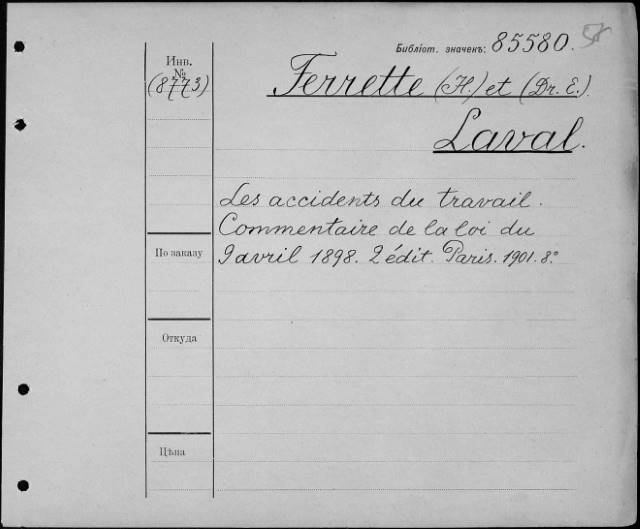 Библіот. значекъ: 85580.
Инв.
№
(8773)
Ferrette (H.) et (Dr. E.).
Laval.
Les accidents du travail.
Commentaire de la loi du
9 avril 1898. 2 édit. Paris. 1901. 8º
По заказу
Откуда
Цѣна